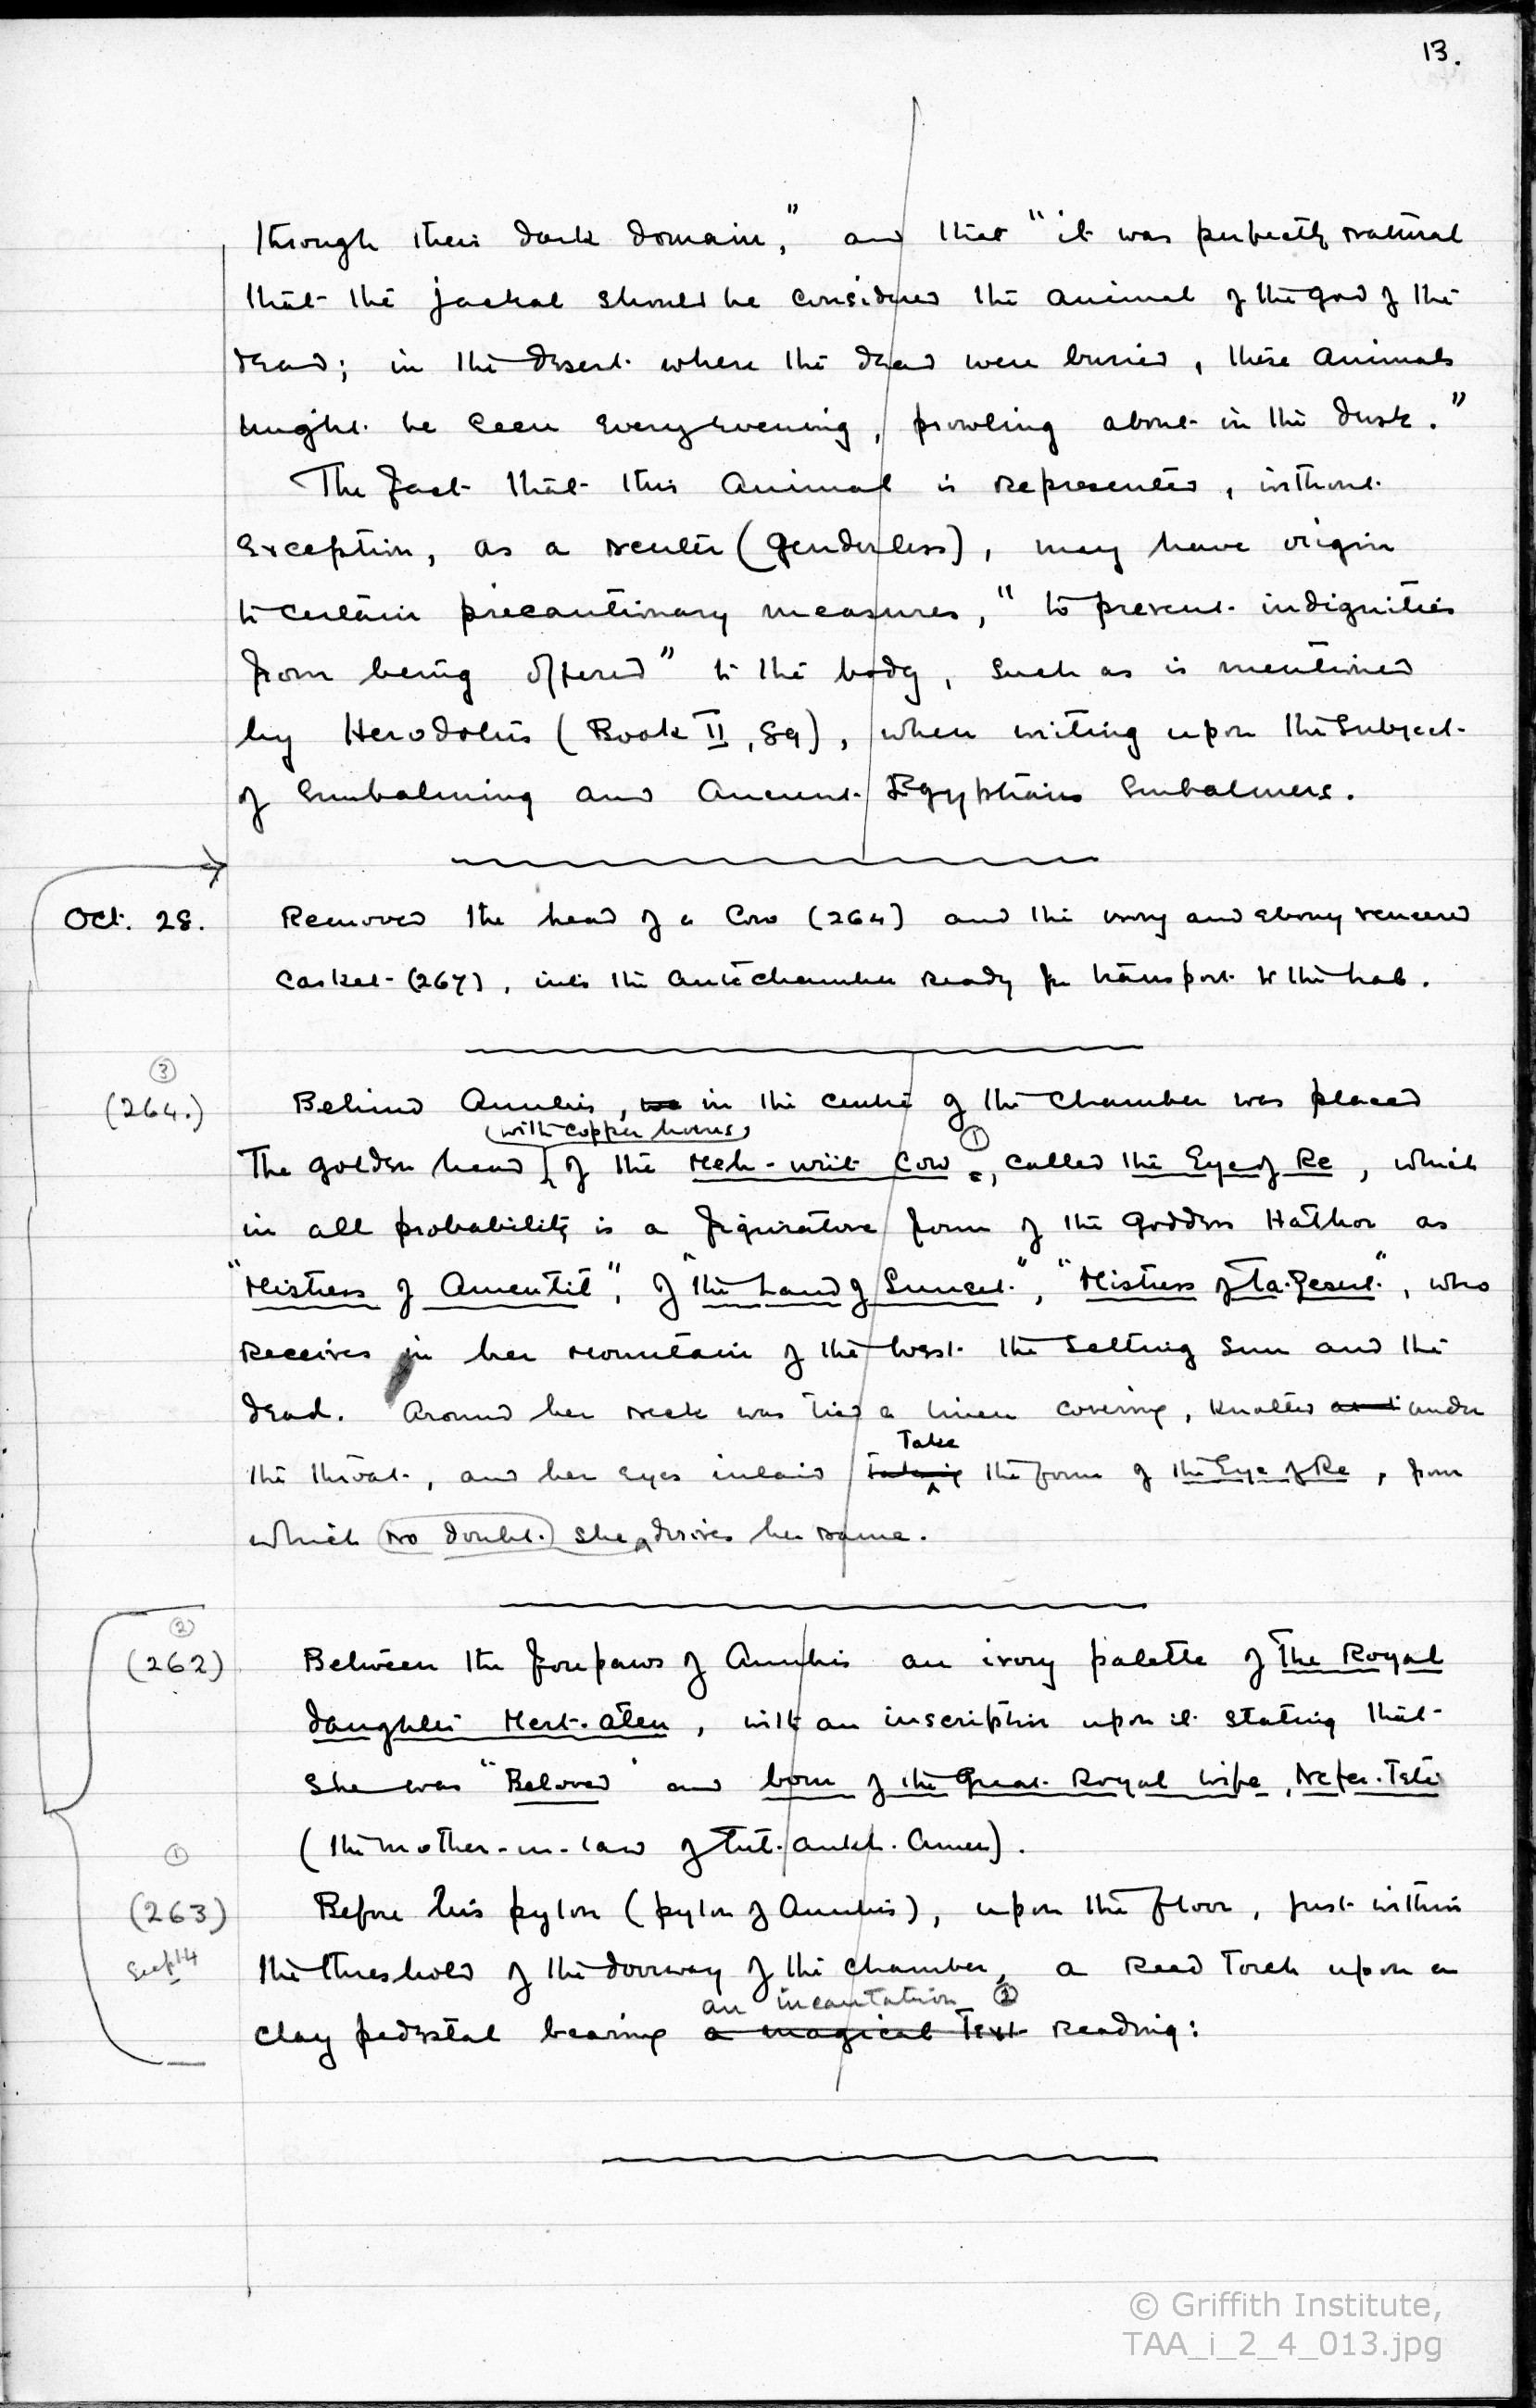 13.
through their dark domain," and that "it was perfectly natural
that the jackal should be considered the animal of the god of the
dead; in the desert where the dead were buried, these animals
might be seen every evening, prowling about in the dusk."
The fact that this animal is represented, without
exception, as a neuter (genderless), may have origin
to certain precautionary measures, "to prevent indignities
from being offered" to the body, such as is mentioned
by Herodotus (Book II, 89), when writing upon the subject
of embalming and Ancient Egyptians Embalmers.
Oct. 28. Removed the head of a Cow (264) and the ivory and ebony veneered
casket (267), into the Antechamber ready for transport to the Lab.
③
(264.) Behind Anubis, in the centre of the chamber was placed
(with copper horns)
The golden head of the Meh-writ Cow ①, called the Eye of Re, which
in all probability is a figurative form of the Goddess Hathor as
"Mistress of Amentit", of "the Land of Sunset", "Mistress of Ta.Zesert", who
receives in her mountain of the West the setting Sun and the
dead. Around her neck was tied a linen covering, knotted under
Take
the throat, and her eyes inlaid taking the form of the Eye of Re, from
which (no doubt) she derives her name.
②
(262) Between the forepaws of Anubis an ivory palette of The Royal
daughter Mert.aten, with an inscription upon it stating that
she was "Beloved" and born of the Great Royal Wife, Nefer.Teti
(the mother-in-law of Tut.ankh.Amen).
①
(263) Before his pylon (pylon of Anubis), upon the floor, just within
the threshold of the doorway of the chamber, a Reed Torch upon a
an incantation ②
clay pedestal bearing a magical Text reading:
© Griffith Institute,
TAA_i_2_4_013.jpg